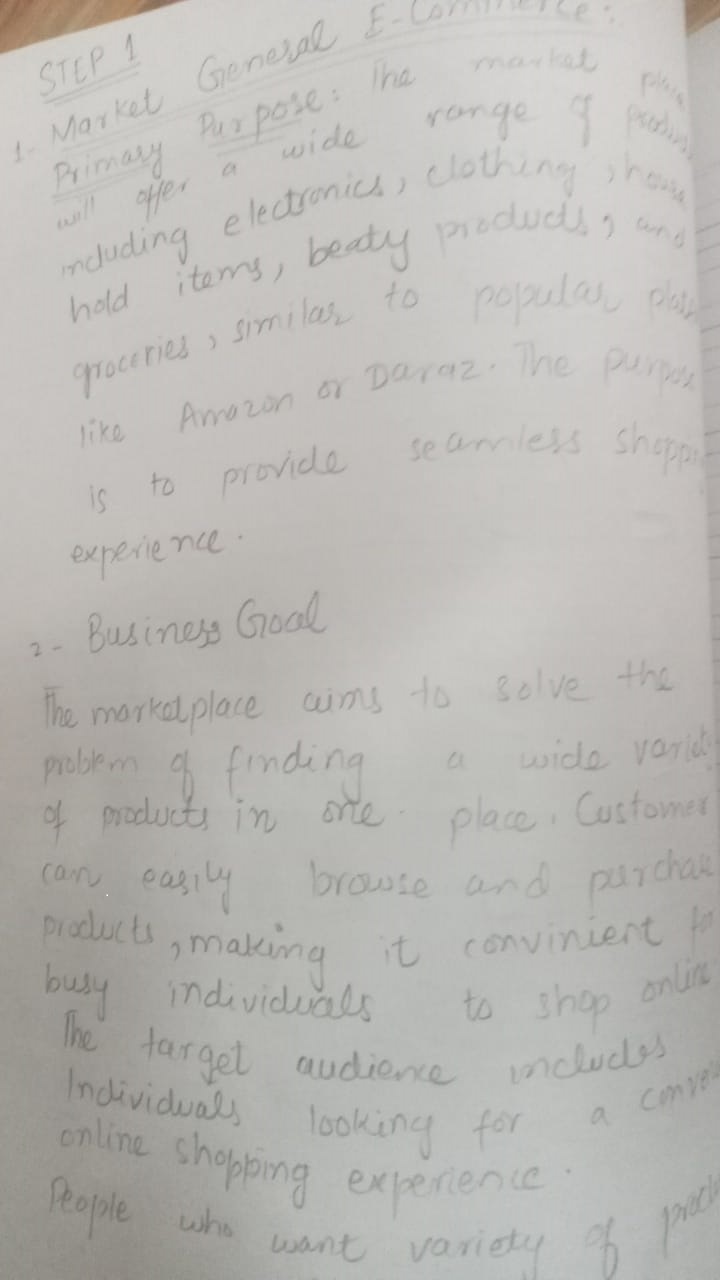 STEP 1
1- Market General E-Commerce:
Primary Purpose: The market place
will offer a wide range of
including electronics, clothing, house
hold items, beaty products, and
groceries, similar to popular
like Amazon or Daraz. The purpose
is to provide seamless
experience.
2- Business Goal
The marketplace aims to solve the
problem of finding a wide
of products in one place. Customer
can easily browse and
products, making it convinient for
busy individuals to shop online
The target audience includes
Individuals looking for a
online shopping experience.
People who want variety of